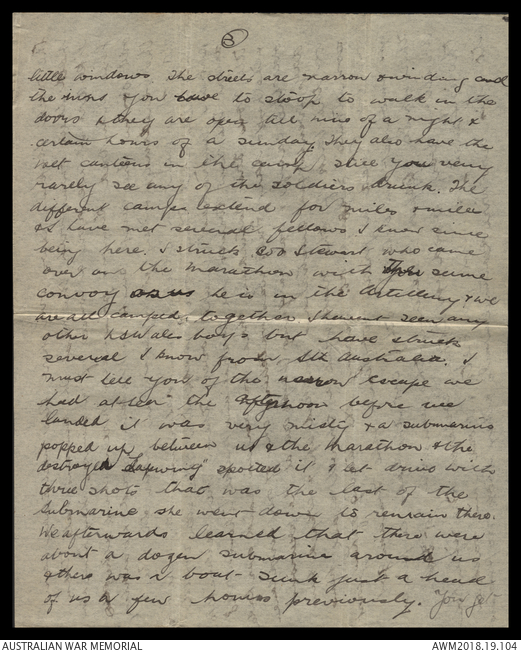 3
little windows The streets are narrow & winding and
the inns & you have to stoop to walk in the
doors & they are open till nine of a night &
certain hours of a Sunday. They also have the
wet canteens in the camp, still you very
rarely see any of the soldiers drunk. The
different camps extend for miles & miles
& I have met several fellows I know since
being here. I struck Stewart who came
over on the Marathon with the same
convoy as us he is in the Artillery & we
are all camped together I havent seen any
other NSWales boys but have struck
several I know from Sth Australia. I
must tell you of the narrow escape we
had at sea the afternoon before we
landed it was very misty & a submarine
popped up between us & the Marathon & the
destroyer "Lapwing" spotted it & let drive with
three shots that was the last of the
submarine she went down to remain there.
We afterwards learned that there were
about a dozen submarine around us
& there was a boat sunk just a head
of us a few hours previously. "You get
AUSTRALIAN WAR MEMORIAL
AWM2018.19.104